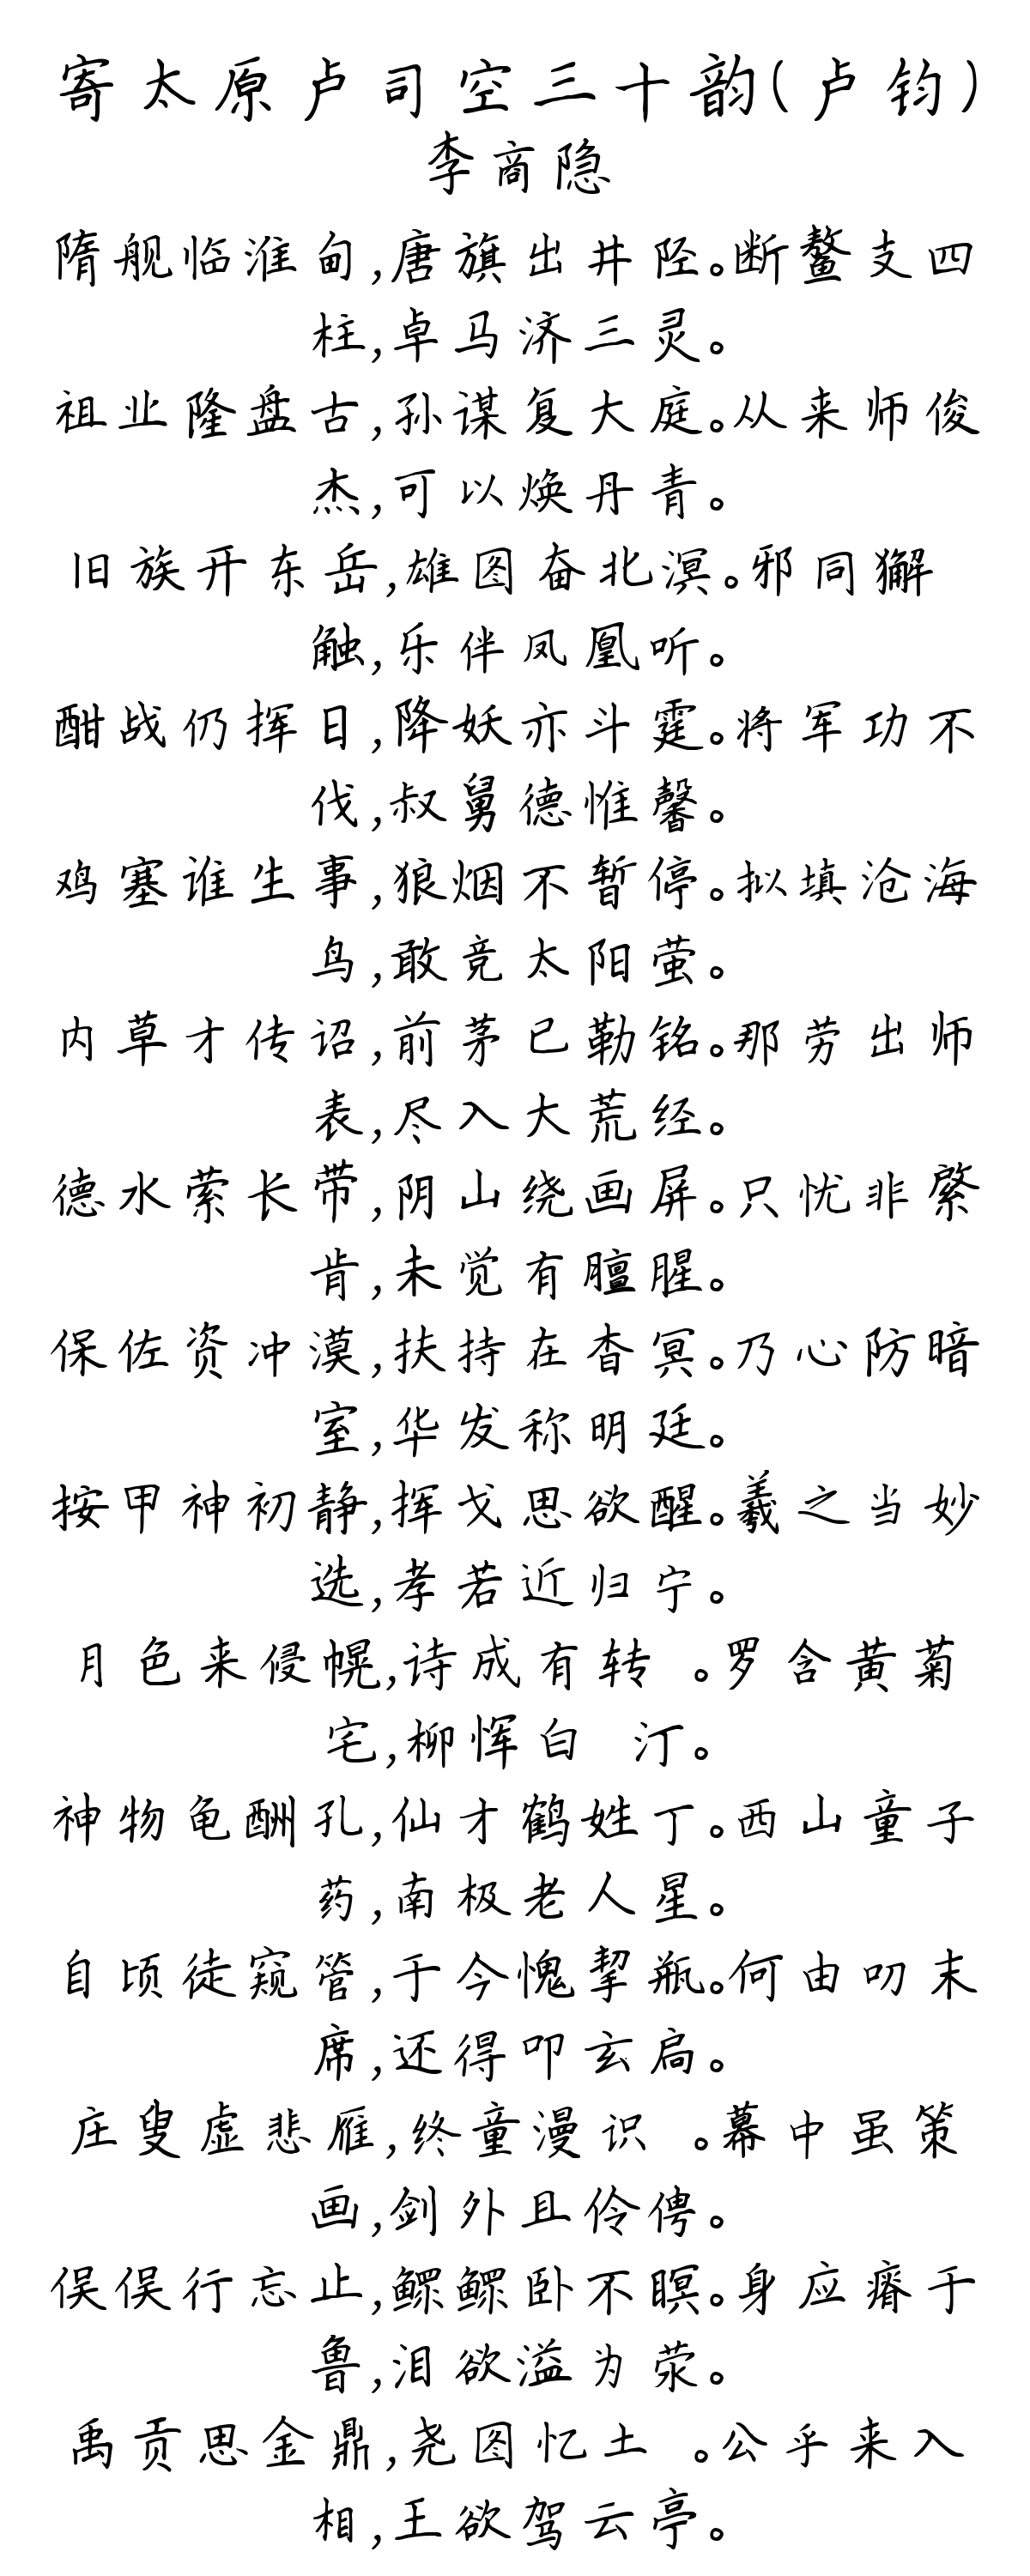 寄太原卢司空三十韵(卢钧)
李商隐
隋舰临淮甸,唐旗出井陉。断鳌支四
柱,卓马济三灵。
祖业隆盘古,孙谋复大庭。从来师俊
杰,可以焕丹青。
旧族开东岳,雄图奋北溟。邪同獬
触,乐伴凤凰听。
酣战仍挥日,降妖亦斗霆。将军功不
伐,叔舅德惟馨。
鸡塞谁生事,狼烟不暂停。拟填沧海
鸟,敢竞太阳萤。
内草才传诏,前茅已勒铭。那劳出师
表,尽入大荒经。
德水萦长带,阴山绕画屏。只忧非綮
肯,未觉有膻腥。
保佐资冲漠,扶持在杳冥。乃心防暗
室,华发称明廷。
按甲神初静,挥戈思欲醒。羲之当妙
选,孝若近归宁。
月色来侵幌,诗成有转 。罗含黄菊
宅,柳恽白 汀。
神物龟酬孔,仙才鹤姓丁。西山童子
药,南极老人星。
自顷徒窥管,于今愧挈瓶。何由叨末
席,还得叩玄扃。
庄叟虚悲雁,终童漫识 。幕中虽策
画,剑外且伶俜。
俣俣行忘止,鳏鳏卧不瞑。身应瘠于
鲁,泪欲溢为荥。
禹贡思金鼎,尧图忆土 。公乎来入
相,王欲驾云亭。